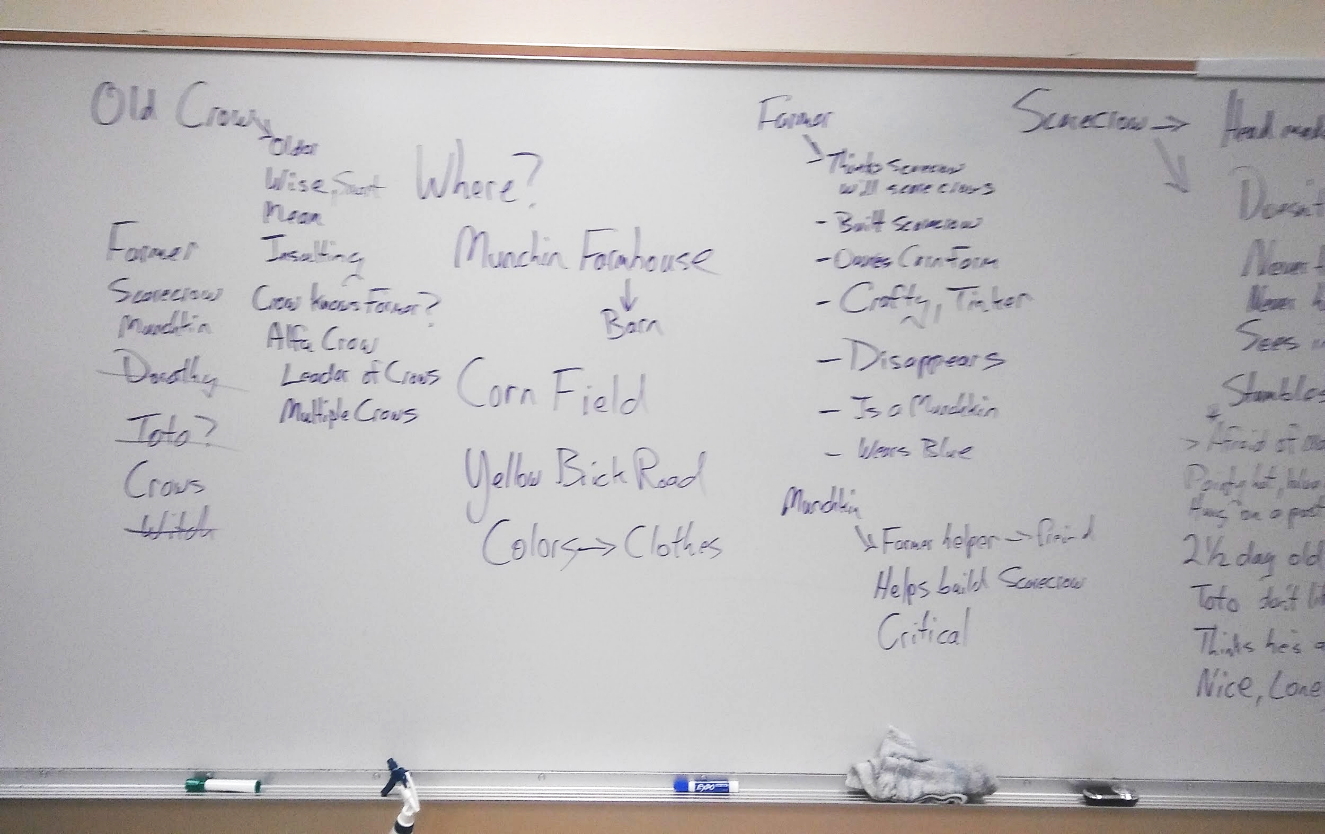 Old Crow
Older
Wise, Smart
Mean
Insulting
Crow knows Farmer?
Alfa Crow
Leader of Crows
Multiple Crows
Farmer
Scarecrow
Munchkin
Dorothy
Toto?
Crows
Witch
Where?
Munchin Farmhouse
Barn
Corn Field
Yellow Brick Road
Colors → Clothes
Farmer
Thinks Scarecrow
will scare crows
- Built Scarecrow
- Owns Corn Farm
- Crafty, Tinker
- Disappears
- Is a Munchkin
- Wears Blue
Munchkin
Farmer helper → friend
Helps build Scarecrow
Critical
Scarecrow →
Head
Doesn't
Never
Sees
Stumbles
> Afraid of
Pointy hat,
Hung on a post
2½ day old
Toto don't
Thinks he's a
Nice,
EXPO